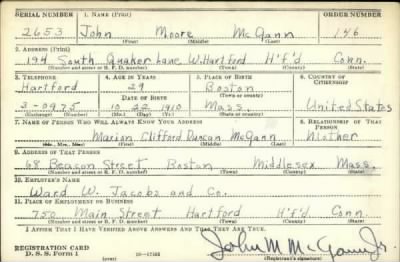 SERIAL NUMBER 1. NAME (Print) ORDER NUMBER
2653 John Moore McGann 146
(First) (Middle) (Last)
2. ADDRESS (Print)
194 South Quaker Lane W. Hartford H'f'd Conn.
(Number and street or R. F. D. number) (Town) (County) (State)
3. TELEPHONE 4. AGE IN YEARS 5. PLACE OF BIRTH 6. COUNTRY OF CITIZENSHIP
Hartford 29 Boston
DATE OF BIRTH (Town or county)
3-0975 10 22 1910 Mass. United States
(Exchange) (Number) (Mo.) (Day) (Yr.) (State or country)
7. NAME OF PERSON WHO WILL ALWAYS KNOW YOUR ADDRESS 8. RELATIONSHIP OF THAT PERSON
Marion Clifford Duncan McGann Mother
(Mr., Mrs., Miss) (First) (Middle) (Last)
9. ADDRESS OF THAT PERSON
68 Beacon Street Boston Middlesex Mass.
(Number and street or R. F. D. number) (Town) (County) (State)
10. EMPLOYER'S NAME
Ward W. Jacobs and Co.
11. PLACE OF EMPLOYMENT OR BUSINESS
750 Main Street Hartford H'f'd Conn.
(Number and street or R. F. D. number) (Town) (County) (State)
I AFFIRM THAT I HAVE VERIFIED ABOVE ANSWERS AND THAT THEY ARE TRUE.
REGISTRATION CARD
D. S. S. Form 1 John M McGann Jr.
(Registrant's signature)